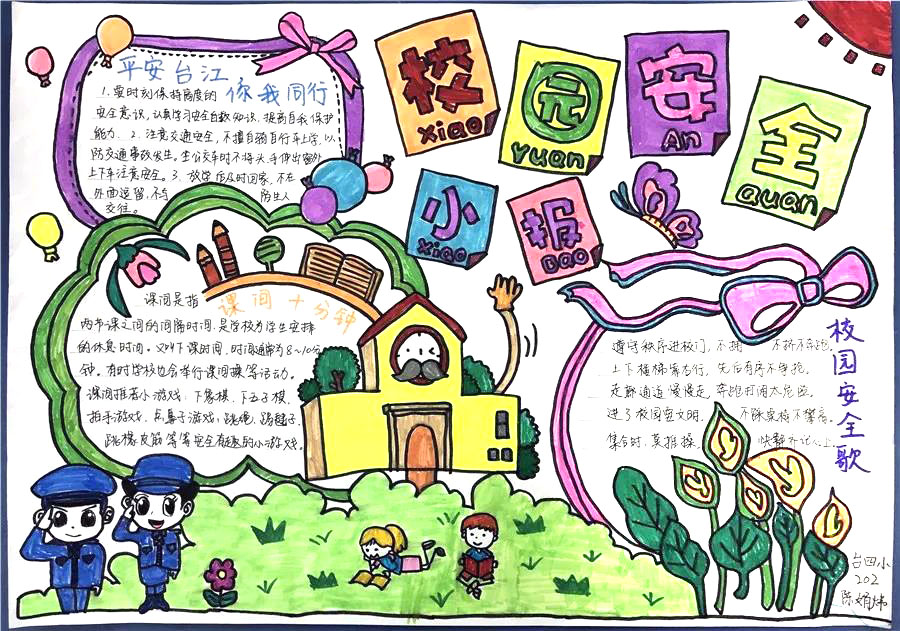 校园安全
xiao yuan An quan
小报
xiao Bao
平安台江
你我同行
1.要时刻保持高度的
安全意识,认真学习安全自救知识,提高自我保护
能力. 2.注意交通安全,不擅自骑自行车上学,以
防交通事故发生。坐公交车时不将头、手伸出窗外
上下车注意安全。3.放学后及时回家,不在
外面逗留,不与 陌生人
交往。
课间十分钟
课间是指
两节课之间的间隔时间.是学校为学生安排
的休息时间。又叫下课时间.时间通常为8~10分
钟。有时学校也会举行课间操等活动。
课间推荐小游戏:下象棋、下五子棋、
拍手游戏、瓦鼻子游戏、跳绳、踢毽子、
跳橡皮筋等等安全有趣的小游戏。
校园安全歌
遵守秩序进校门,不拥 不挤不奔跑.
上下楼梯靠右行,先后有序不争抢.
走廊通道慢慢走,奔跑打闹太危险.
进了校园要文明. 不踩桌椅不攀高.
集合时,莫推搡.
台四小
202
陈